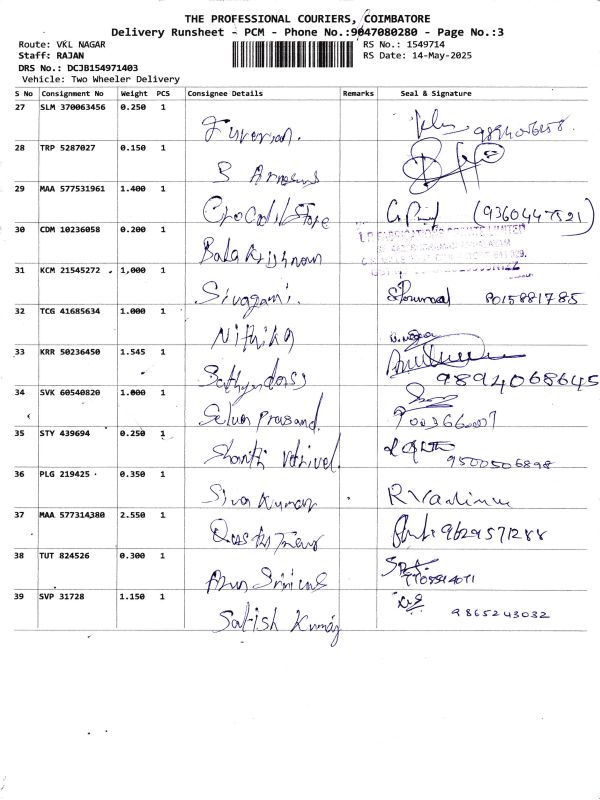 THE PROFESSIONAL COURIERS, COIMBATORE
Delivery Runsheet - PCM - Phone No.:9047080280 - Page No.:3
Route: VKL NAGAR
RS No.: 1549714
Staff: RAJAN
RS Date: 14-May-2025
DRS No.: DCJB154971403
Vehicle: Two Wheeler Delivery
S No Consignment No Weight PCS Consignee Details Remarks Seal & Signature
27 SLM 370063456 0.250 1
28 TRP 5287027 0.150 1
S
29 MAA 577531961 1.400 1
Crocodil Store (9360447821)
30 CDM 10236058 0.200 1
Bala Krishnan
31 KCM 21545272 1,000 1
Sivagami. 8015881785
32 TCG 41685634 1.000 1
Nithika
33 KRR 50236450 1.545 1
9894068645
34 SVK 60540820 1.000 1
Selva Prasand
35 STY 439694 0.250 1
Shanthi Vetrivel. 9500506898
36 PLG 219425 0.350 1
Siva Kumar
37 MAA 577314380 2.550 1
9629571288
38 TUT 824526 0.300 1
Arun
39 SVP 31728 1.150 1
Satish Kumar 9865243032